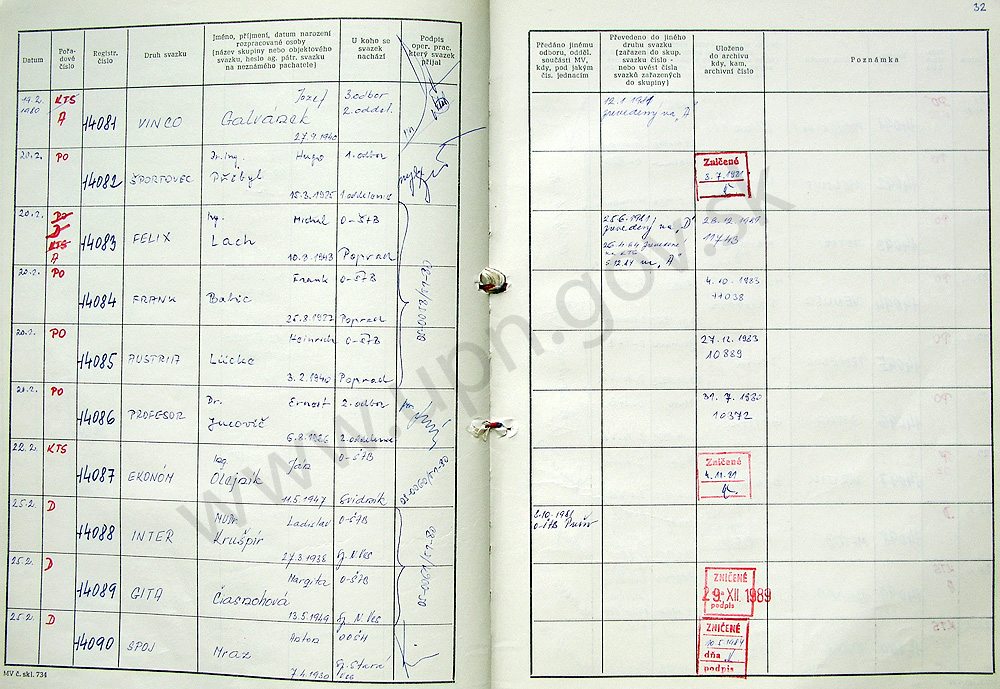 32
Datum
Pořa-
dové
číslo
Registr.
číslo
Druh svazku
Jméno, příjmení, datum narození
rozpracované osoby
(název skupiny nebo objektového
svazku, heslo ag. pátr. svazku
na neznámého pachatele)
U koho se
svazek
nachází
Podpis
oper. prac.
který svazek
přijal
Předáno jinému
odboru, odděl.
součásti MV,
kdy, pod jakým
čís. jednacím
Převedeno do jiného
druhu svazku
(zařazen do skup.
svazku číslo -
nebo uvést čísla
svazků zařazených
do skupiny)
Uloženo
do archivu
kdy, kam,
archivní číslo
Poznámka
19.2.
1980
KTS
A
14081
VINCO
Jozef
Galvánek
27.9.1940
3. odbor
2. oddel.
12.1.1981
prevedený na "A"
20.2.
PO
14082
ŠPORTOVEC
Dr. Ing. Hugo
Přibyl
1. odbor
1. oddelenie
Zničené
3.7.1981
20.2.
KTS
A
14083
FELIX
Ing. Michal
Lach
10.9.1943
O-ŠTB
Poprad
25.6.1981
prevedený na "D"
na "A"
28.12.1989
11743
20.2.
PO
14084
FRANK
Frank
Babic
O-ŠTB
Poprad
05-0058/51-80
4.10.1983
11038
20.2.
PO
14085
AUSTRIA
Heinrich
Lücke
3.2.1940
O-ŠTB
Poprad
27.12.1983
10889
20.2.
PO
14086
PROFESOR
Dr. Ernest
6.8.1926
2. odbor
2. oddelenie
31.7.1980
10372
22.2.
KTS
14087
EKONÓM
Ing. Ján
Olejník
11.5.1947
O-ŠTB
Svidník
05-0060/51-80
Zničené
4.11.81
25.2.
D
14088
INTER
MUDr. Ladislav
Krušpir
27.3.1938
O-ŠTB
Sp. N. Ves
O-ŠTB Prešov
25.2.
D
14089
GITA
Margita
13.5.1949
O-ŠTB
Sp. N. Ves
05-0061/51-80
ZNIČENÉ
29. XII. 1989
podpis
25.2.
D
14090
SPOJ
Anton
Mraz
7.4.1930
Sp. Stará
Ves
ZNIČENÉ
dňa
podpis
MV č. skl. 734
www.upn.gov.sk